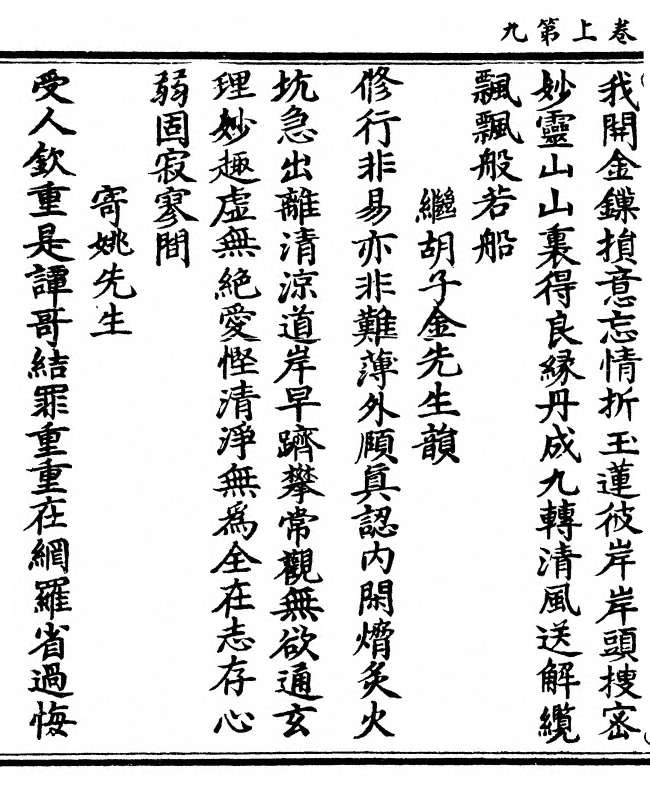 卷上第九
我開金鏁損意忘情折玉蓮彼岸岸頭搜密
妙靈山山裏得良緣丹成九轉清風送解纜
飄飄般若船
繼胡子金先生韻
修行非易亦非難薄外頤眞認內閑爝炙火
坑急出離清涼道岸早躋攀常觀無欲通玄
理妙趣虛無絕愛慳清淨無爲全在志存心
弱固寂寥間
寄姚先生
受人欽重是譚哥結罪重重在網羅省過悔